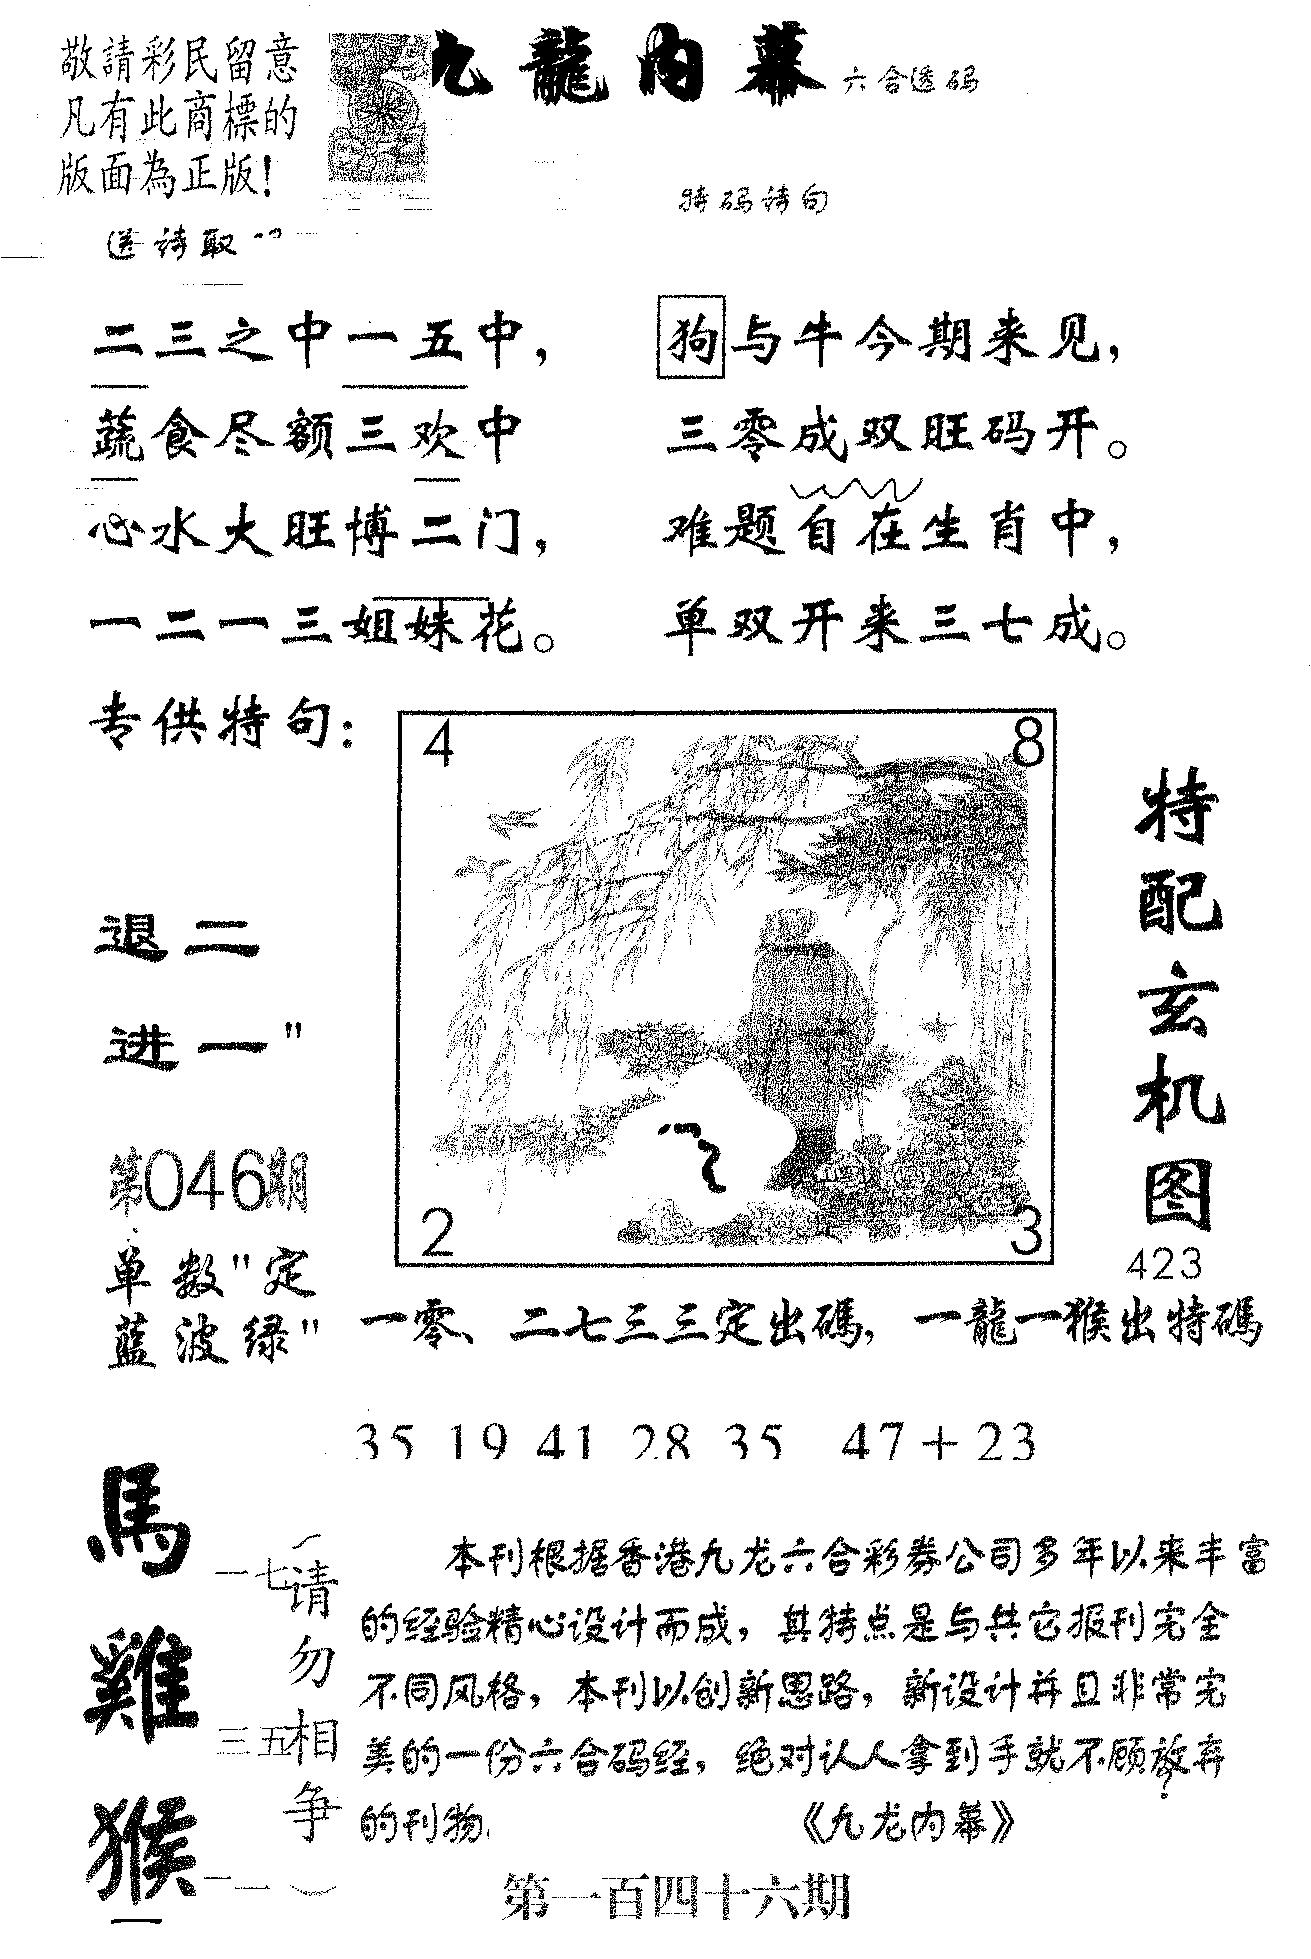 敬請彩民留意
凡有此商標的
版面為正版!
九龍内幕 六合透码
特码诗句
送诗取
二三之中一五中，
蔬食尽额三欢中
心水大旺博二门，
一二一三姐妹花。
狗与牛今期来见，
三零成双旺码开。
难题自在生肖中，
单双开来三七成。
专供特句：
退二
进一"
第046期
单数"定
蓝波绿"
4 8
2 3
特配玄机图
423
一零、二七三三定出碼，一龍一猴出特碼
35 19 41 28 35 47+23
馬 一七
雞 三五
猴 一一
（请勿相争）
本刊根据香港九龙六合彩券公司多年以来丰富
的经验精心设计而成，其特点是与其它报刊完全
不同风格，本刊以创新思路，新设计并且非常完
美的一份六合码经，绝对认人拿到手就不顾放弃
的刊物
《九龙内幕》
第一百四十六期